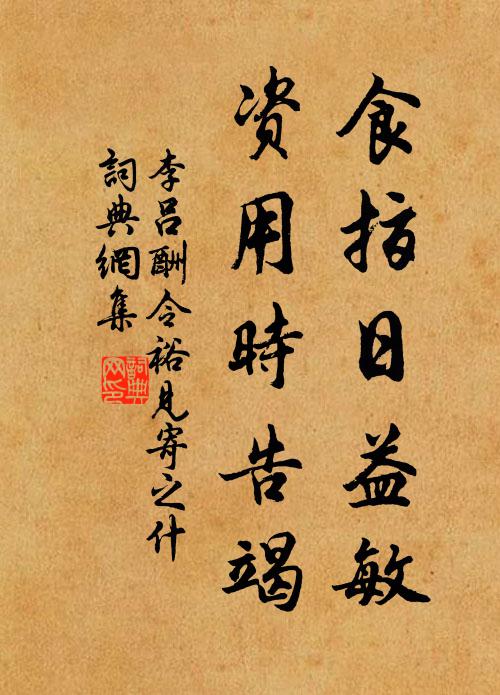 食指日益敏
資用時告竭
李呂酬令裕見寄之什
詞典網集
詞典网印